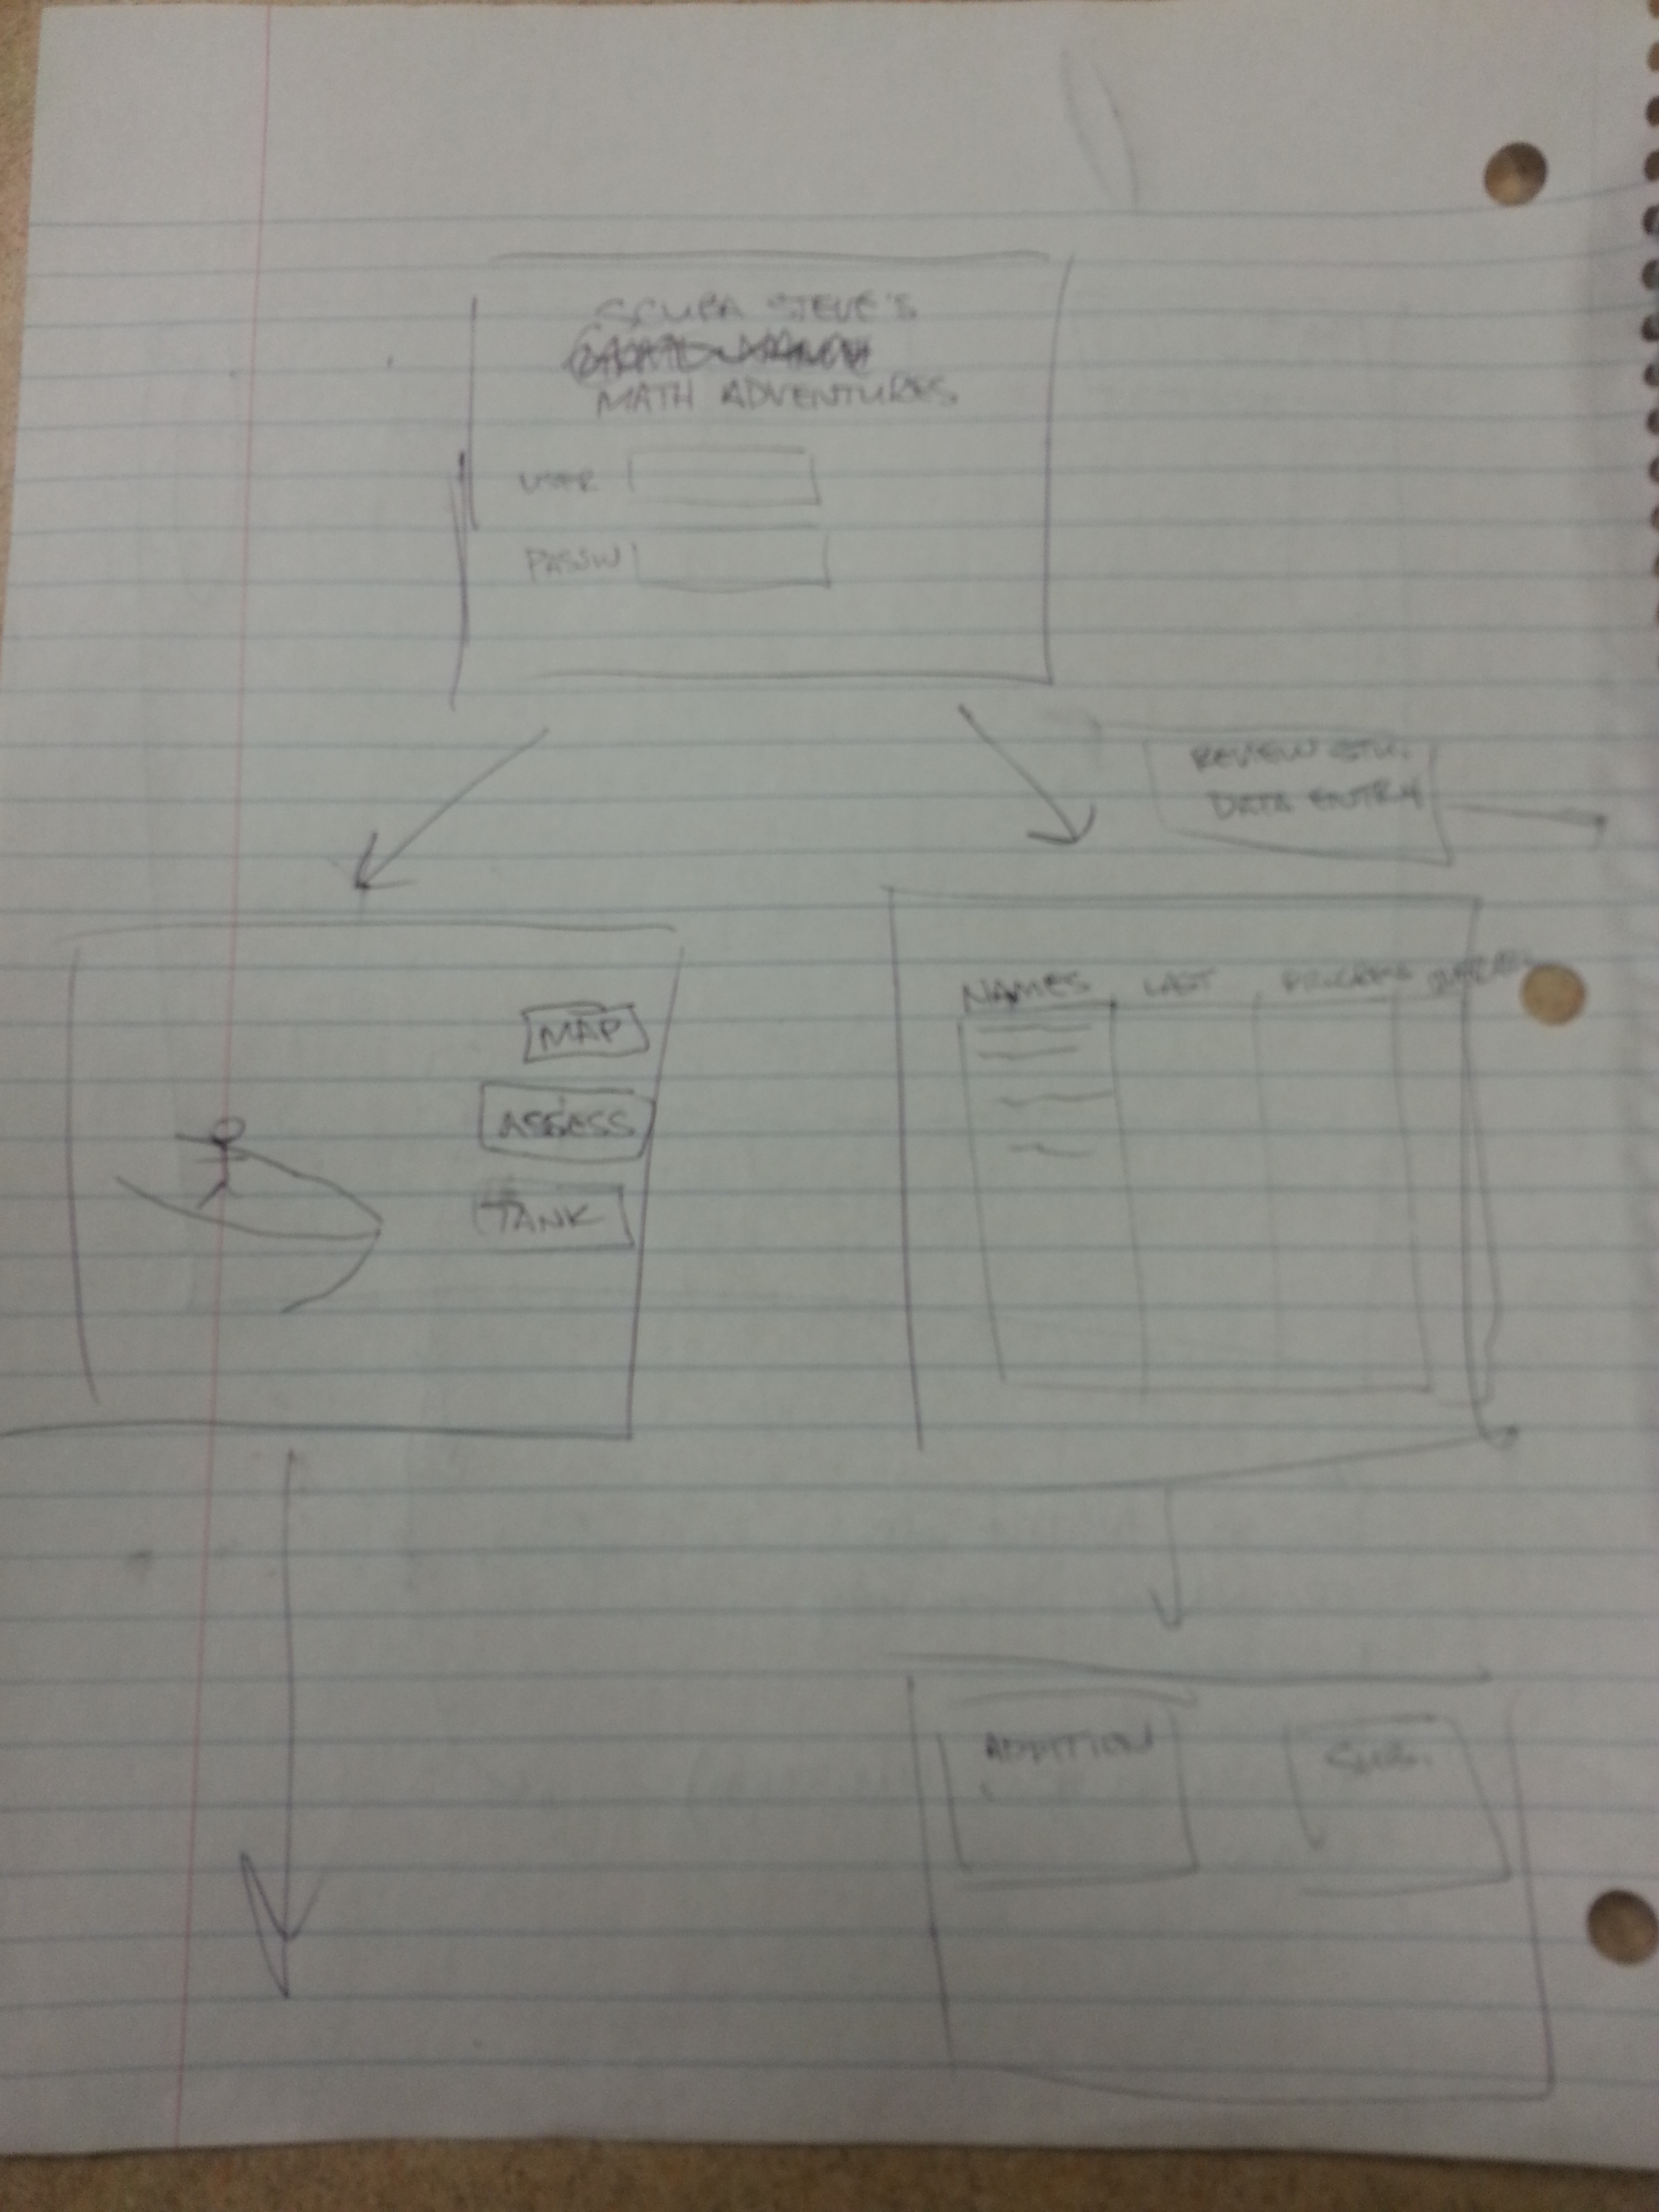 SCUBA STEVE'S
MATH ADVENTURES
USER
PASSW
REVIEW STU.
DATA ENTRY
MAP
ASSESS
TANK
NAMES LAST
ADDITION
SUB.